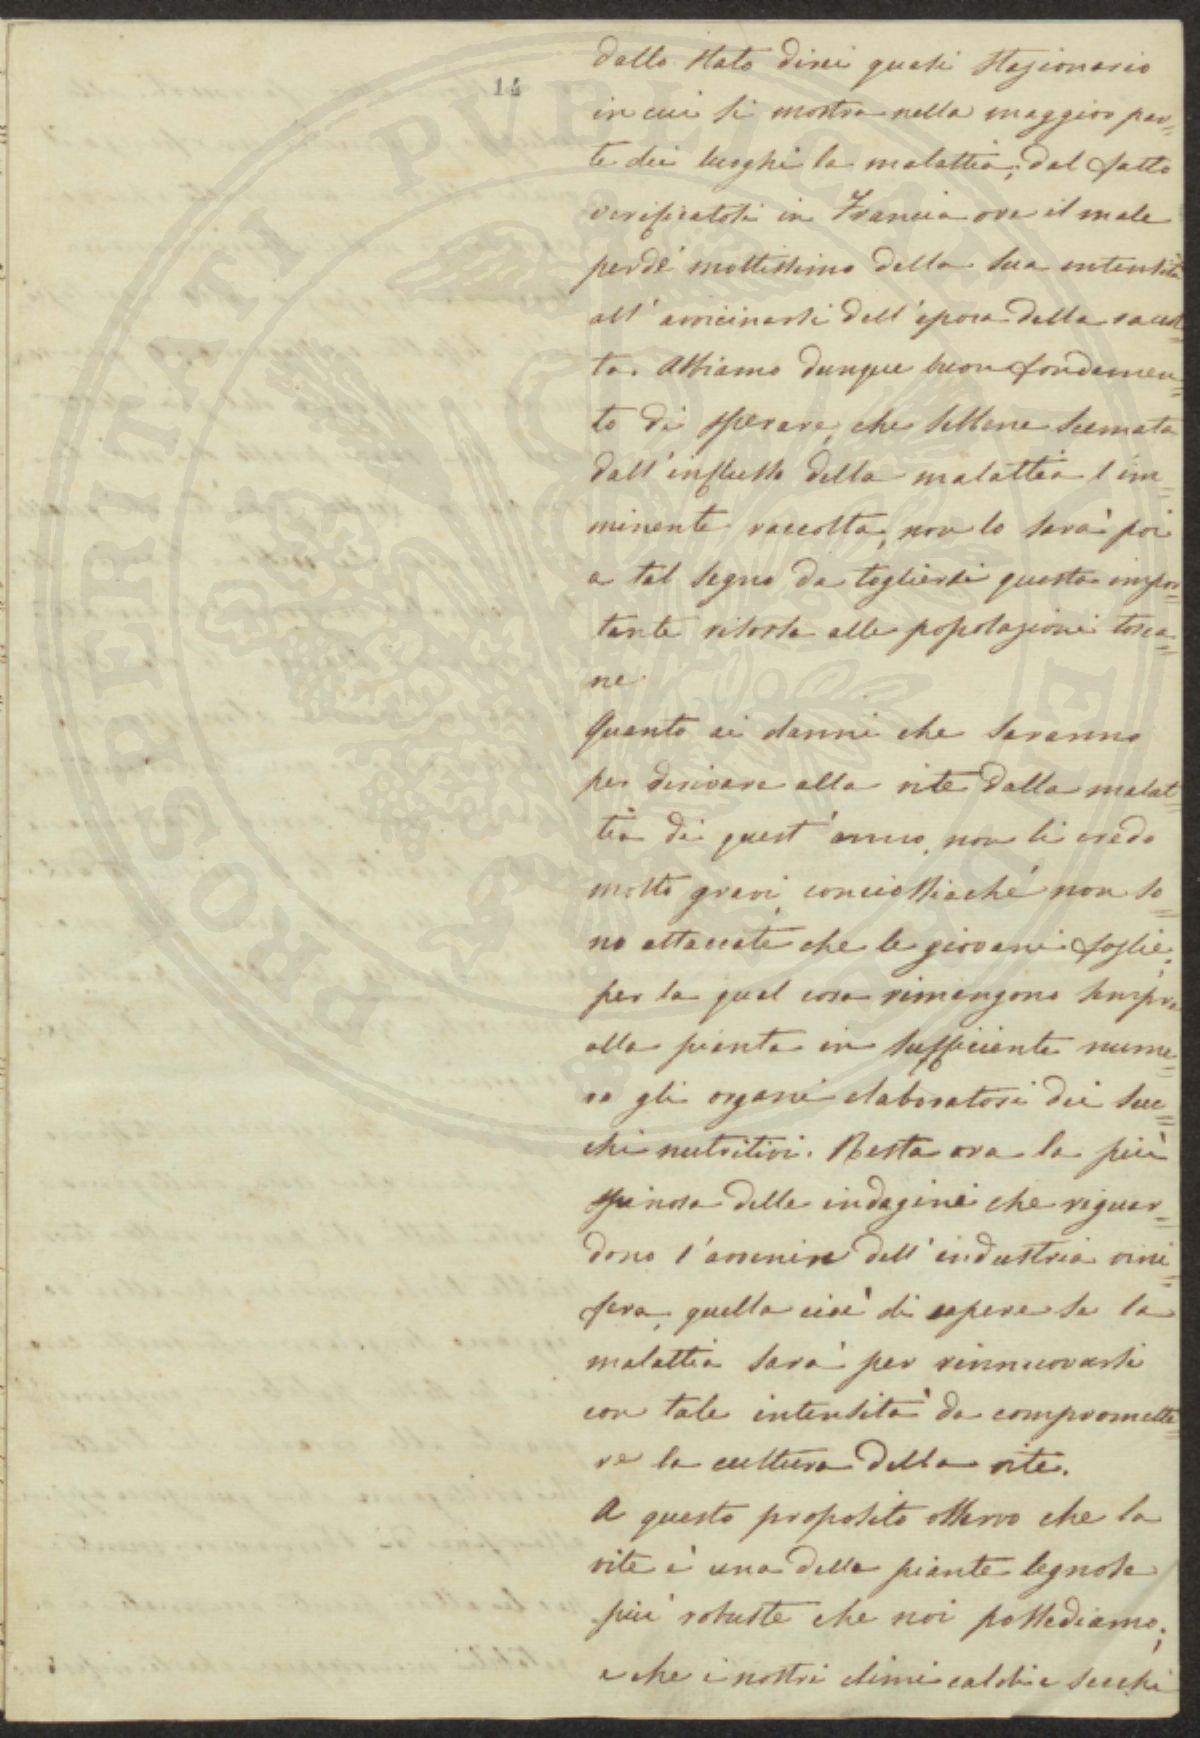 14
dallo stato direi quasi stazionario
in cui si mostra nella maggior par=
te dei luoghi la malattia; dal fatto
verificatosi in Francia ove il male
perdè moltissimo della sua intensità
all'avvicinarsi dell'epoca della raccol=
ta. Abbiamo dunque buon fondamen=
to di sperare, che sebbene scemata
dall'influsso della malattia l'im=
minente raccolta, non lo sarà poi
a tal segno da togliersi questa impor=
tante risorsa alle popolazioni tosca=
ne.
Quanto ai danni che saranno
per derivare alla vite dalla malat=
tia di quest'anno, non li credo
molto gravi, conciossiaché non so=
no attaccate che le giovani foglie;
per la qual cosa rimangono sempre
alla pianta in sufficiente nume=
ro gli organi elaboratori dei suc=
chi nutritivi. Resta ora la più
spinosa delle indagini che riguar=
dono l'avvenire dell'industria vini=
fera, quella cioè di sapere se la
malattia sarà per rinnuovarsi
con tale intensità da compromette=
re la cultura della vite.
A questo proposito osservo che la
vite è una delle piante legnose
più robuste che noi possediamo;
e che i nostri climi caldi e secchi
PROSPERITATI PVBLICAE